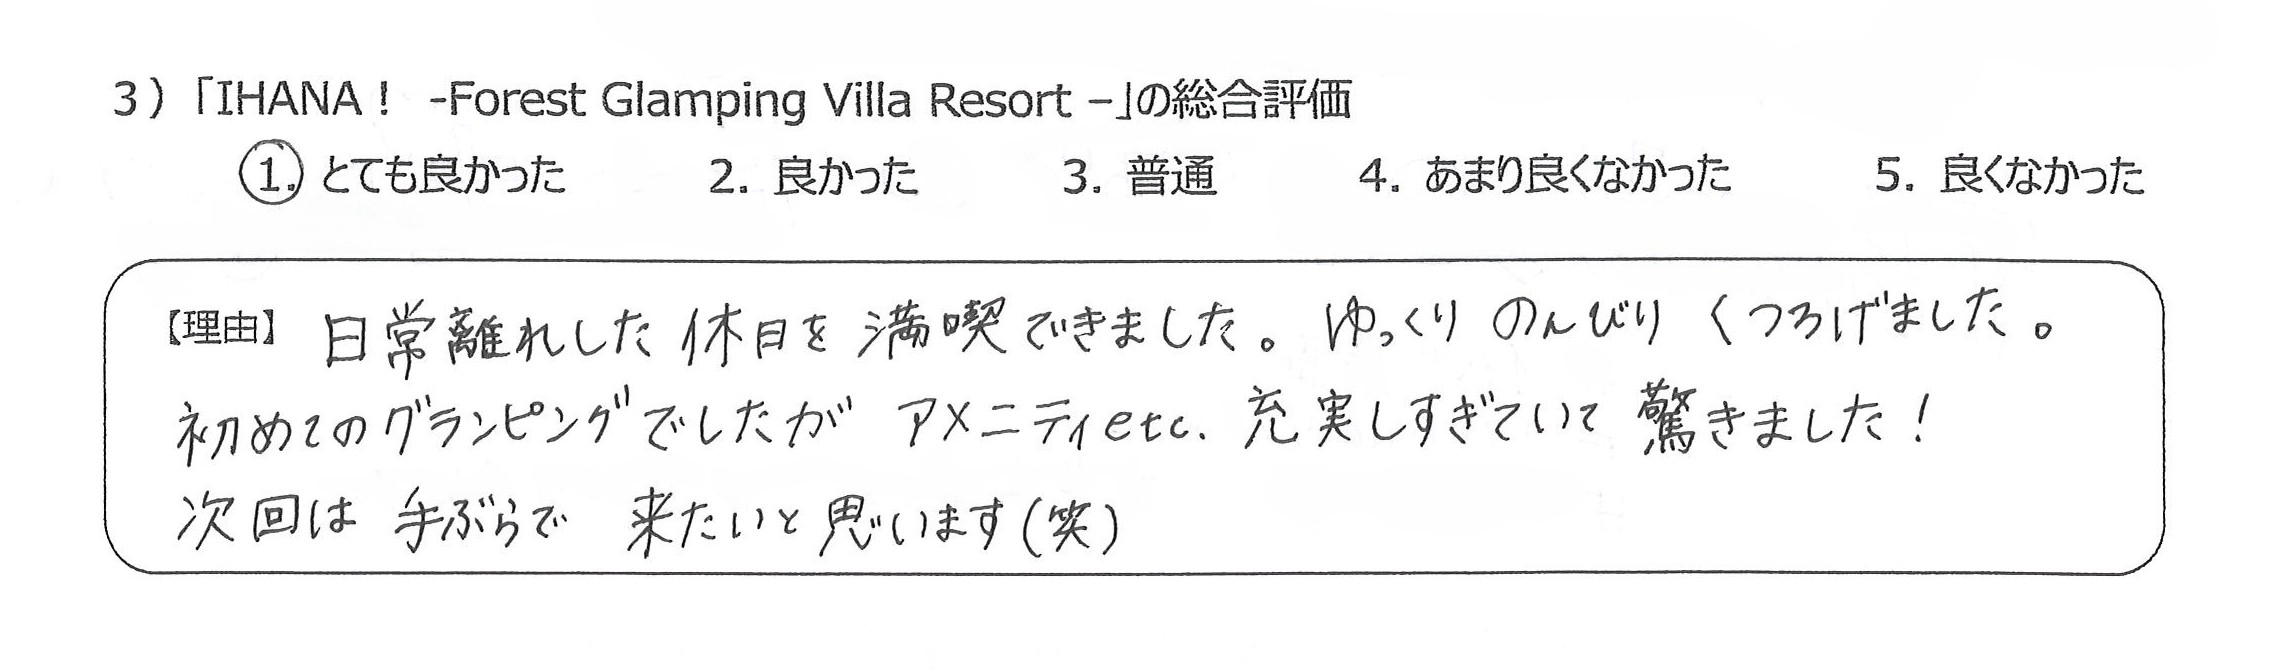 3）「IHANA！ -Forest Glamping Villa Resort –」の総合評価
1. とても良かった 2. 良かった 3. 普通 4. あまり良くなかった 5. 良くなかった
【理由】 日常離れした休日を満喫できました。ゆっくりのんびりくつろげました。
初めてのグランピングでしたがアメニティetc. 充実しすぎていて驚きました！
次回は手ぶらで来たいと思います(笑)